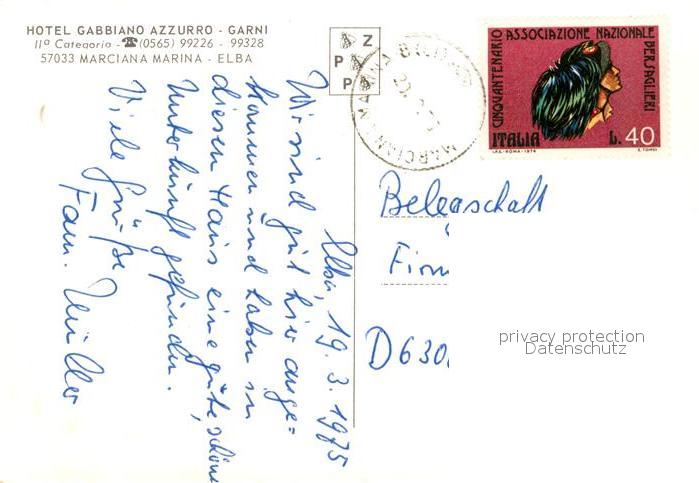 HOTEL GABBIANO AZZURRO - GARNI
IIª Categoria - ☎ (0565) 99226 - 99328
57033 MARCIANA MARINA - ELBA
Z
P
P
CINQUANTENARIO ASSOCIAZIONE NAZIONALE BERSAGLIERI
ITALIA L. 40
I.P.S.-ROMA-1974
MARCIANA MARINA
Elba, 19. 3. 1975
Wir sind gut hier ange=
kommen und haben in
diesem Haus eine gute, schöne
Unterkunft gefunden.
Viele Grüße
Fam. Müller
Belegschaft
Firm
D 630
privacy protection
Datenschutz